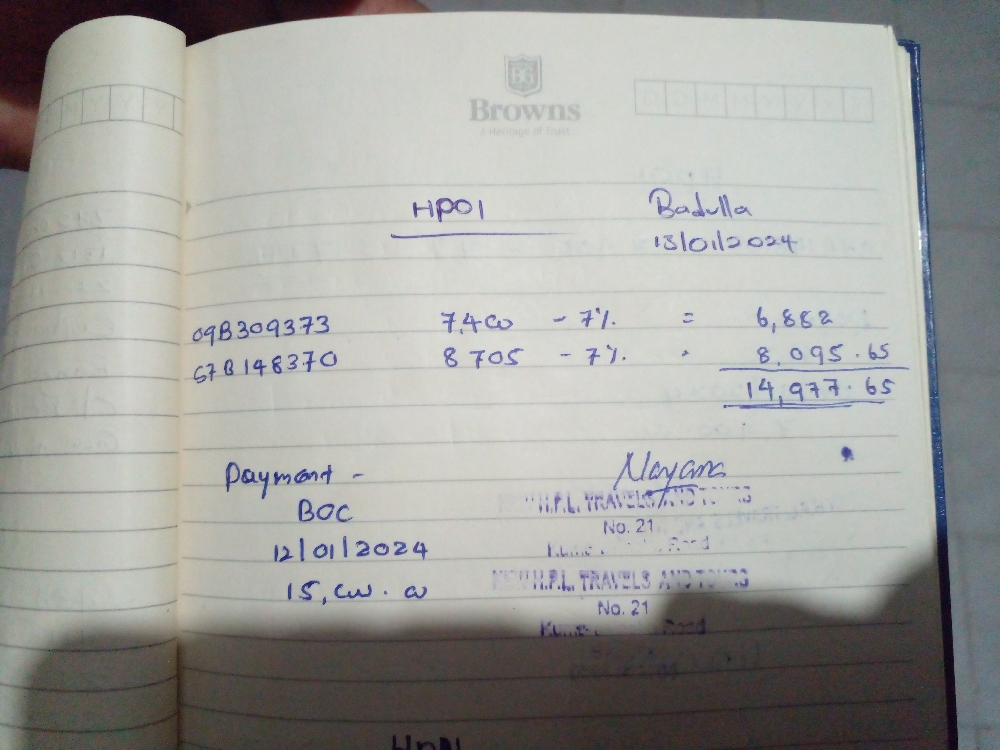 Browns
A Heritage of Trust
HPO1 Badulla
13/01/2024
09B309373 7,400 - 7% = 6,882
57B148370 8705 - 7% = 8,095.65
14,977.65
Payment - Nayana
BOC H.P.L. TRAVELS AND TOURS
No. 21
12/01/2024 Road
15,000.00 H.P.L. TRAVELS AND TOURS
No. 21
Road